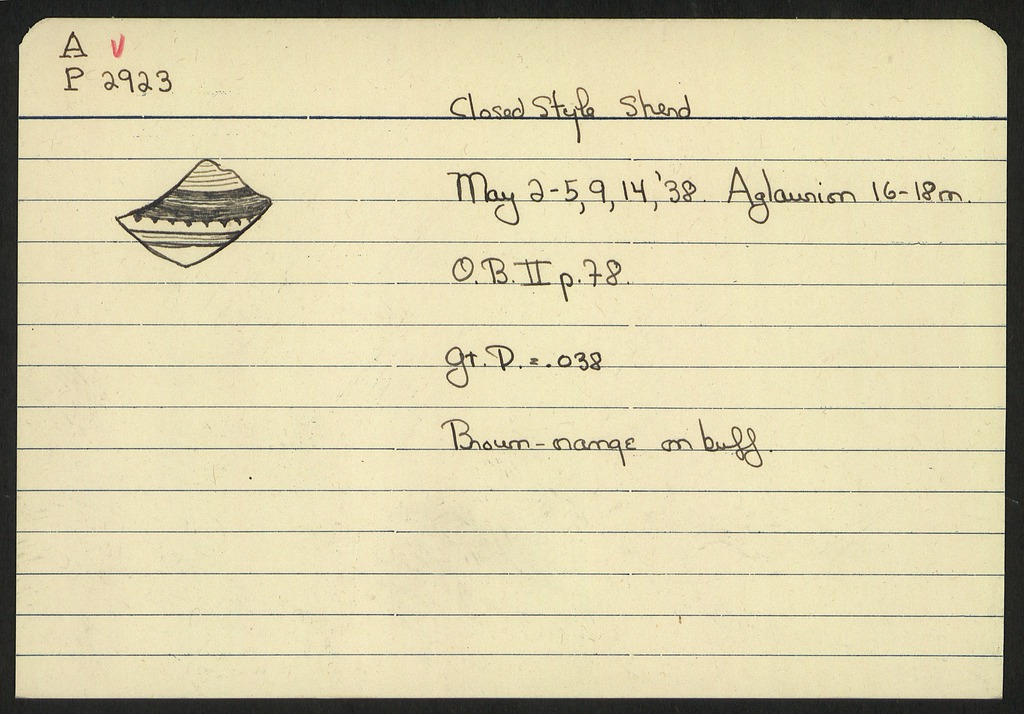 A V
P 2923
Closed Style Sherd
May 2-5, 9, 14, '38. Aglaurion 16-18m.
O.B. II p.78.
gt. D. = .038
Brown-orange on buff.